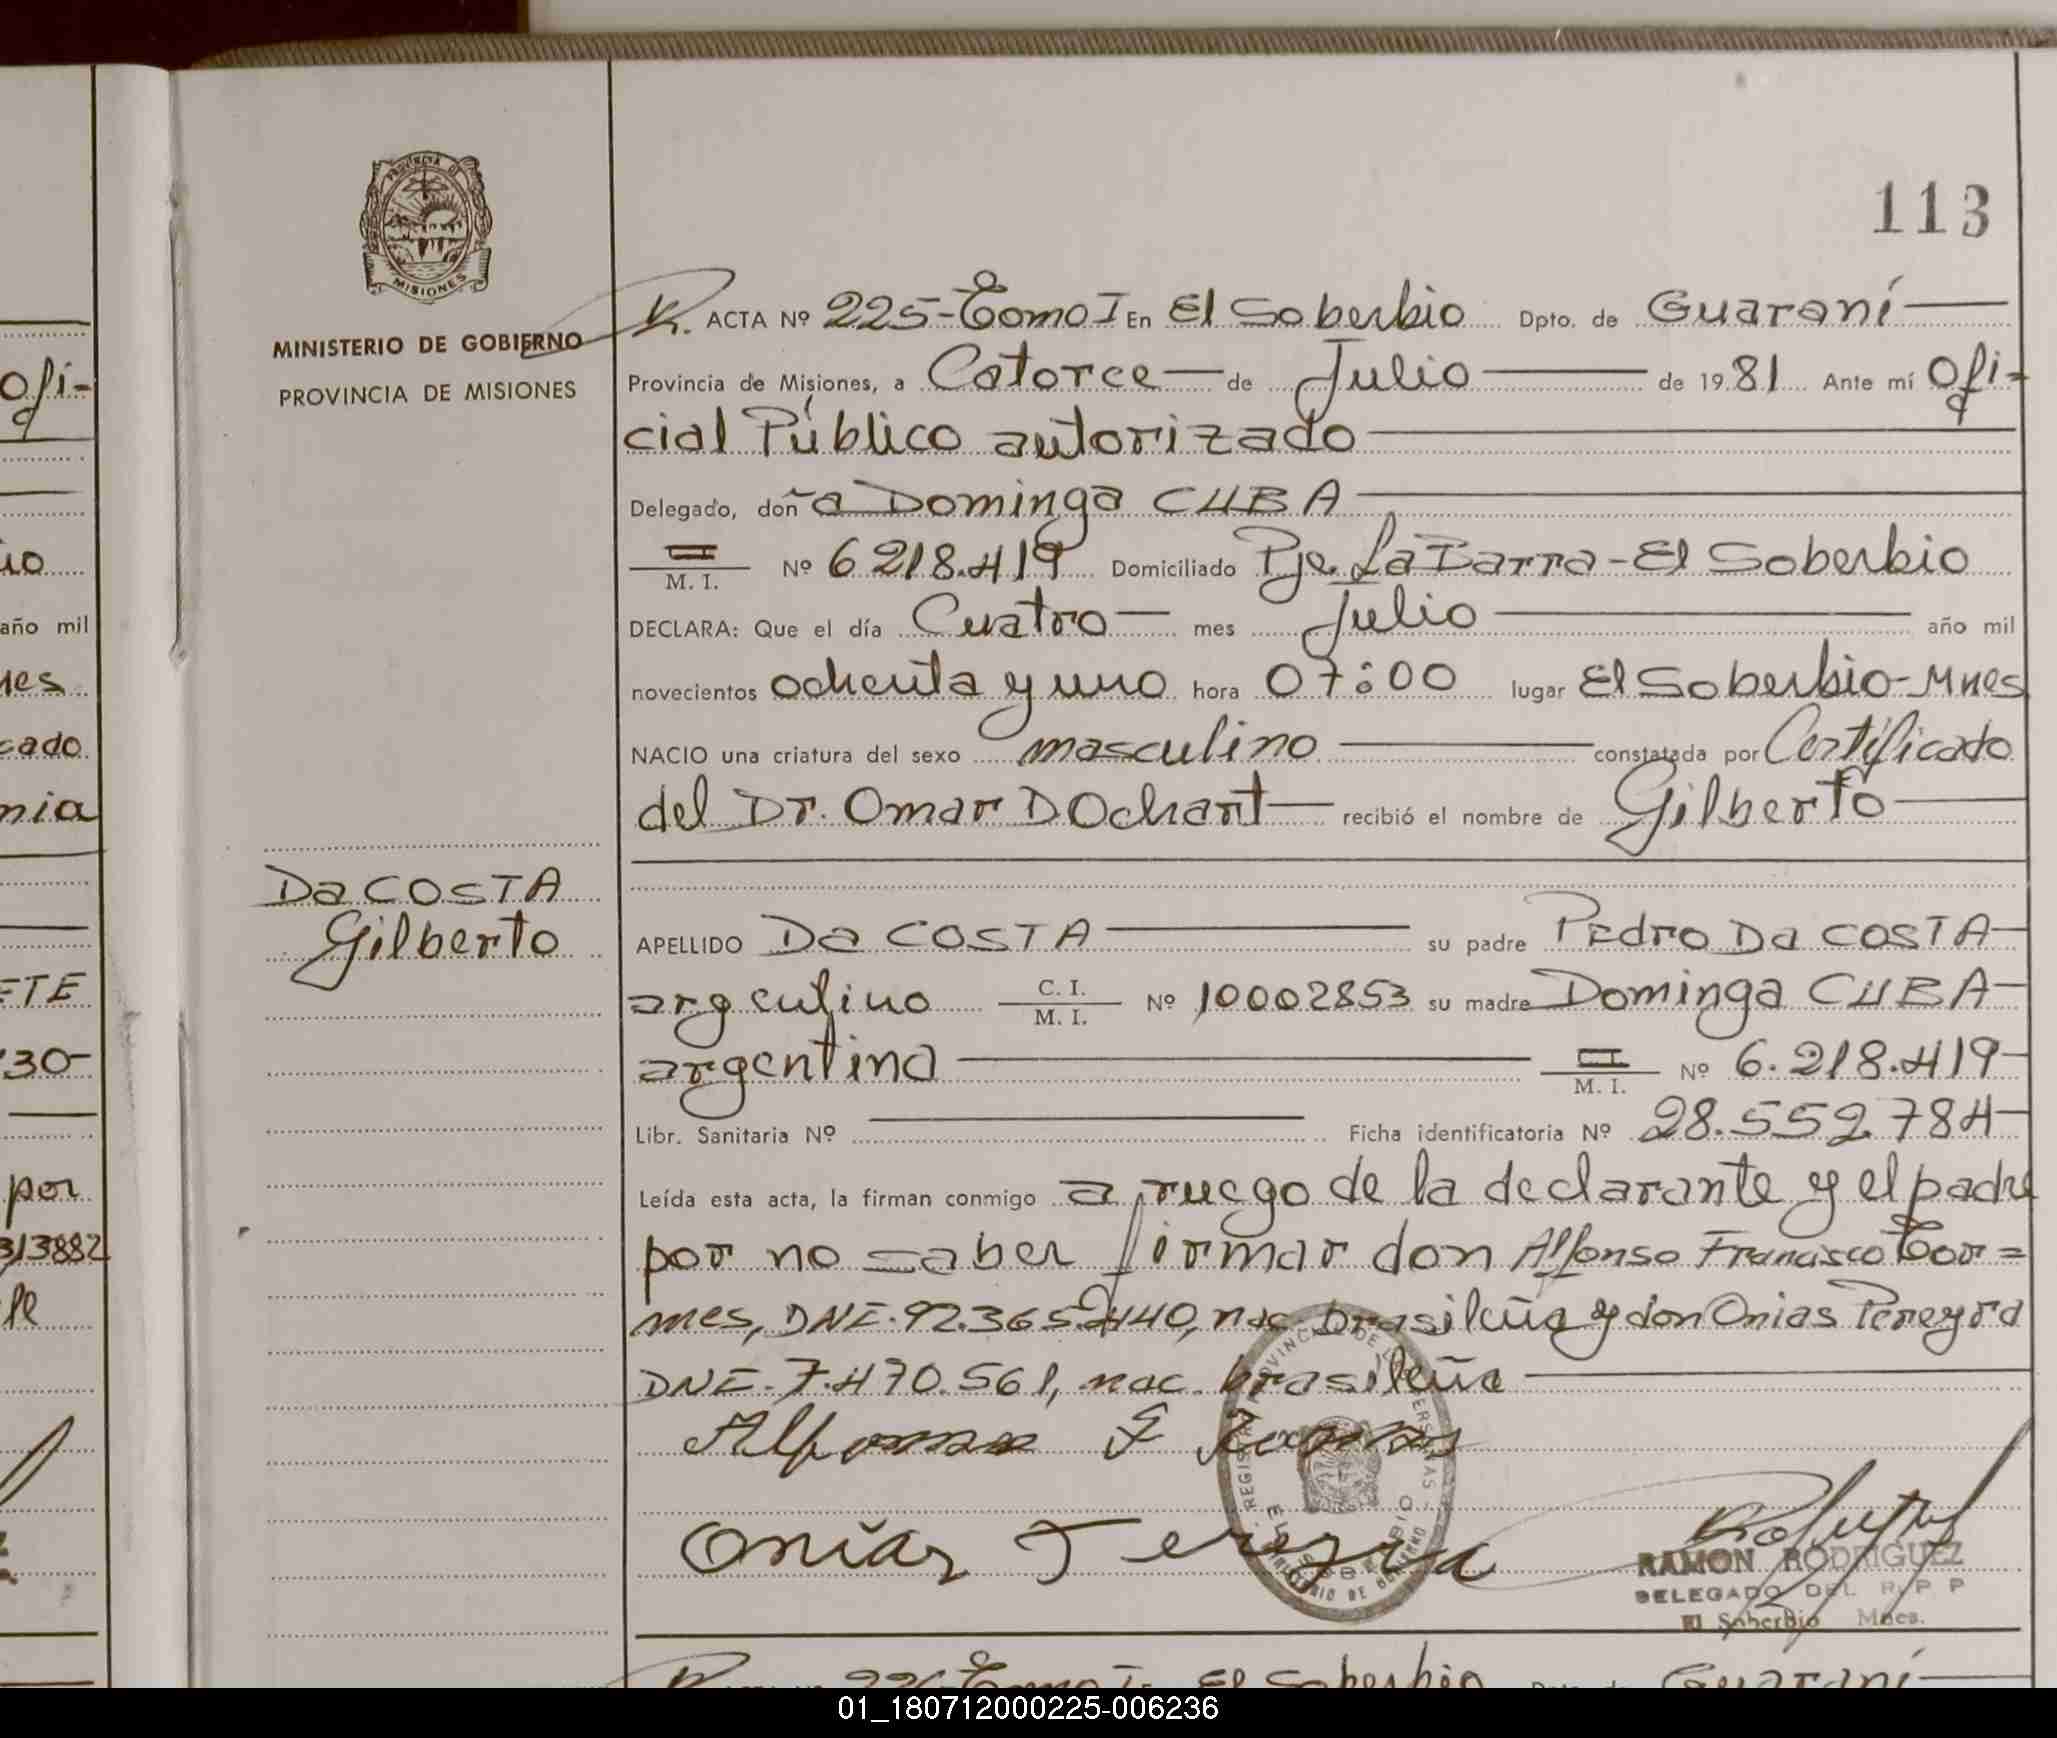 113
PROVINCIA DE
MISIONES
MINISTERIO DE GOBIERNO
PROVINCIA DE MISIONES
R. ACTA Nº 225-Tomo I En El Soberbio Dpto. de Guaraní
Provincia de Misiones, a Catorce de Julio de 1981 Ante mí Ofi-
cial Público autorizado
Delegado, doña Dominga CUBA
M. I. Nº 6218.419 Domiciliado Pje. La Barra-El Soberbio
DECLARA: Que el día Cuatro mes Julio año mil
novecientos ochenta y uno hora 07:00 lugar El Soberbio-Mnes
NACIO una criatura del sexo masculino constatada por Certificado
del Dr. Omar DOchant recibió el nombre de Gilberto
Da COSTA
Gilberto
APELLIDO Da COSTA su padre Pedro Da COSTA
argentino C. I. M. I. Nº 10002853 su madre Dominga CUBA
argentina M. I. Nº 6.218.419
Libr. Sanitaria Nº Ficha identificatoria Nº 28.552.784
Leída esta acta, la firman conmigo a ruego de la declarante y el padre
por no saber firmar don Alfonso Francisco Tor=
mes, DNE.92.365.440, nac. brasileña y don Onias Pereyra
DNE.7.470.561, nac. brasileña
Alfonso F
Onias Pereyra
RAMON RODRIGUEZ
DELEGADO DEL R. P P
El Soberbio Mnes.
Ofi-
io
año mil
nes
cado
nia
ETE
30-
por
313882
le
226-Tomo I En El Soberbio Dpto. de Guaraní
01_180712000225-006236